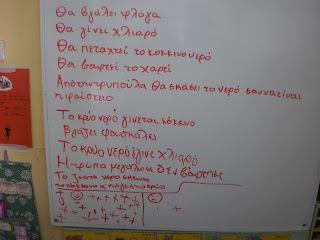 Θα βγάλει φλόγα
Θα γίνει χλιαρό
Θα πεταχτεί το κόκκινο νερό
Θα βαφτεί το χαρτί
Από την τρυπούλα θα σκάσει το νερό σαν να είναι
ηφαίστειο
Το κρύο νερό γίνεται κόκκινο
βγάζει φουσκάλες
Το κρύο νερό έγινε χλιαρό
Η τρύπα μεγάλωσε Δεν βάφτηκε
Το ζεστό νερό